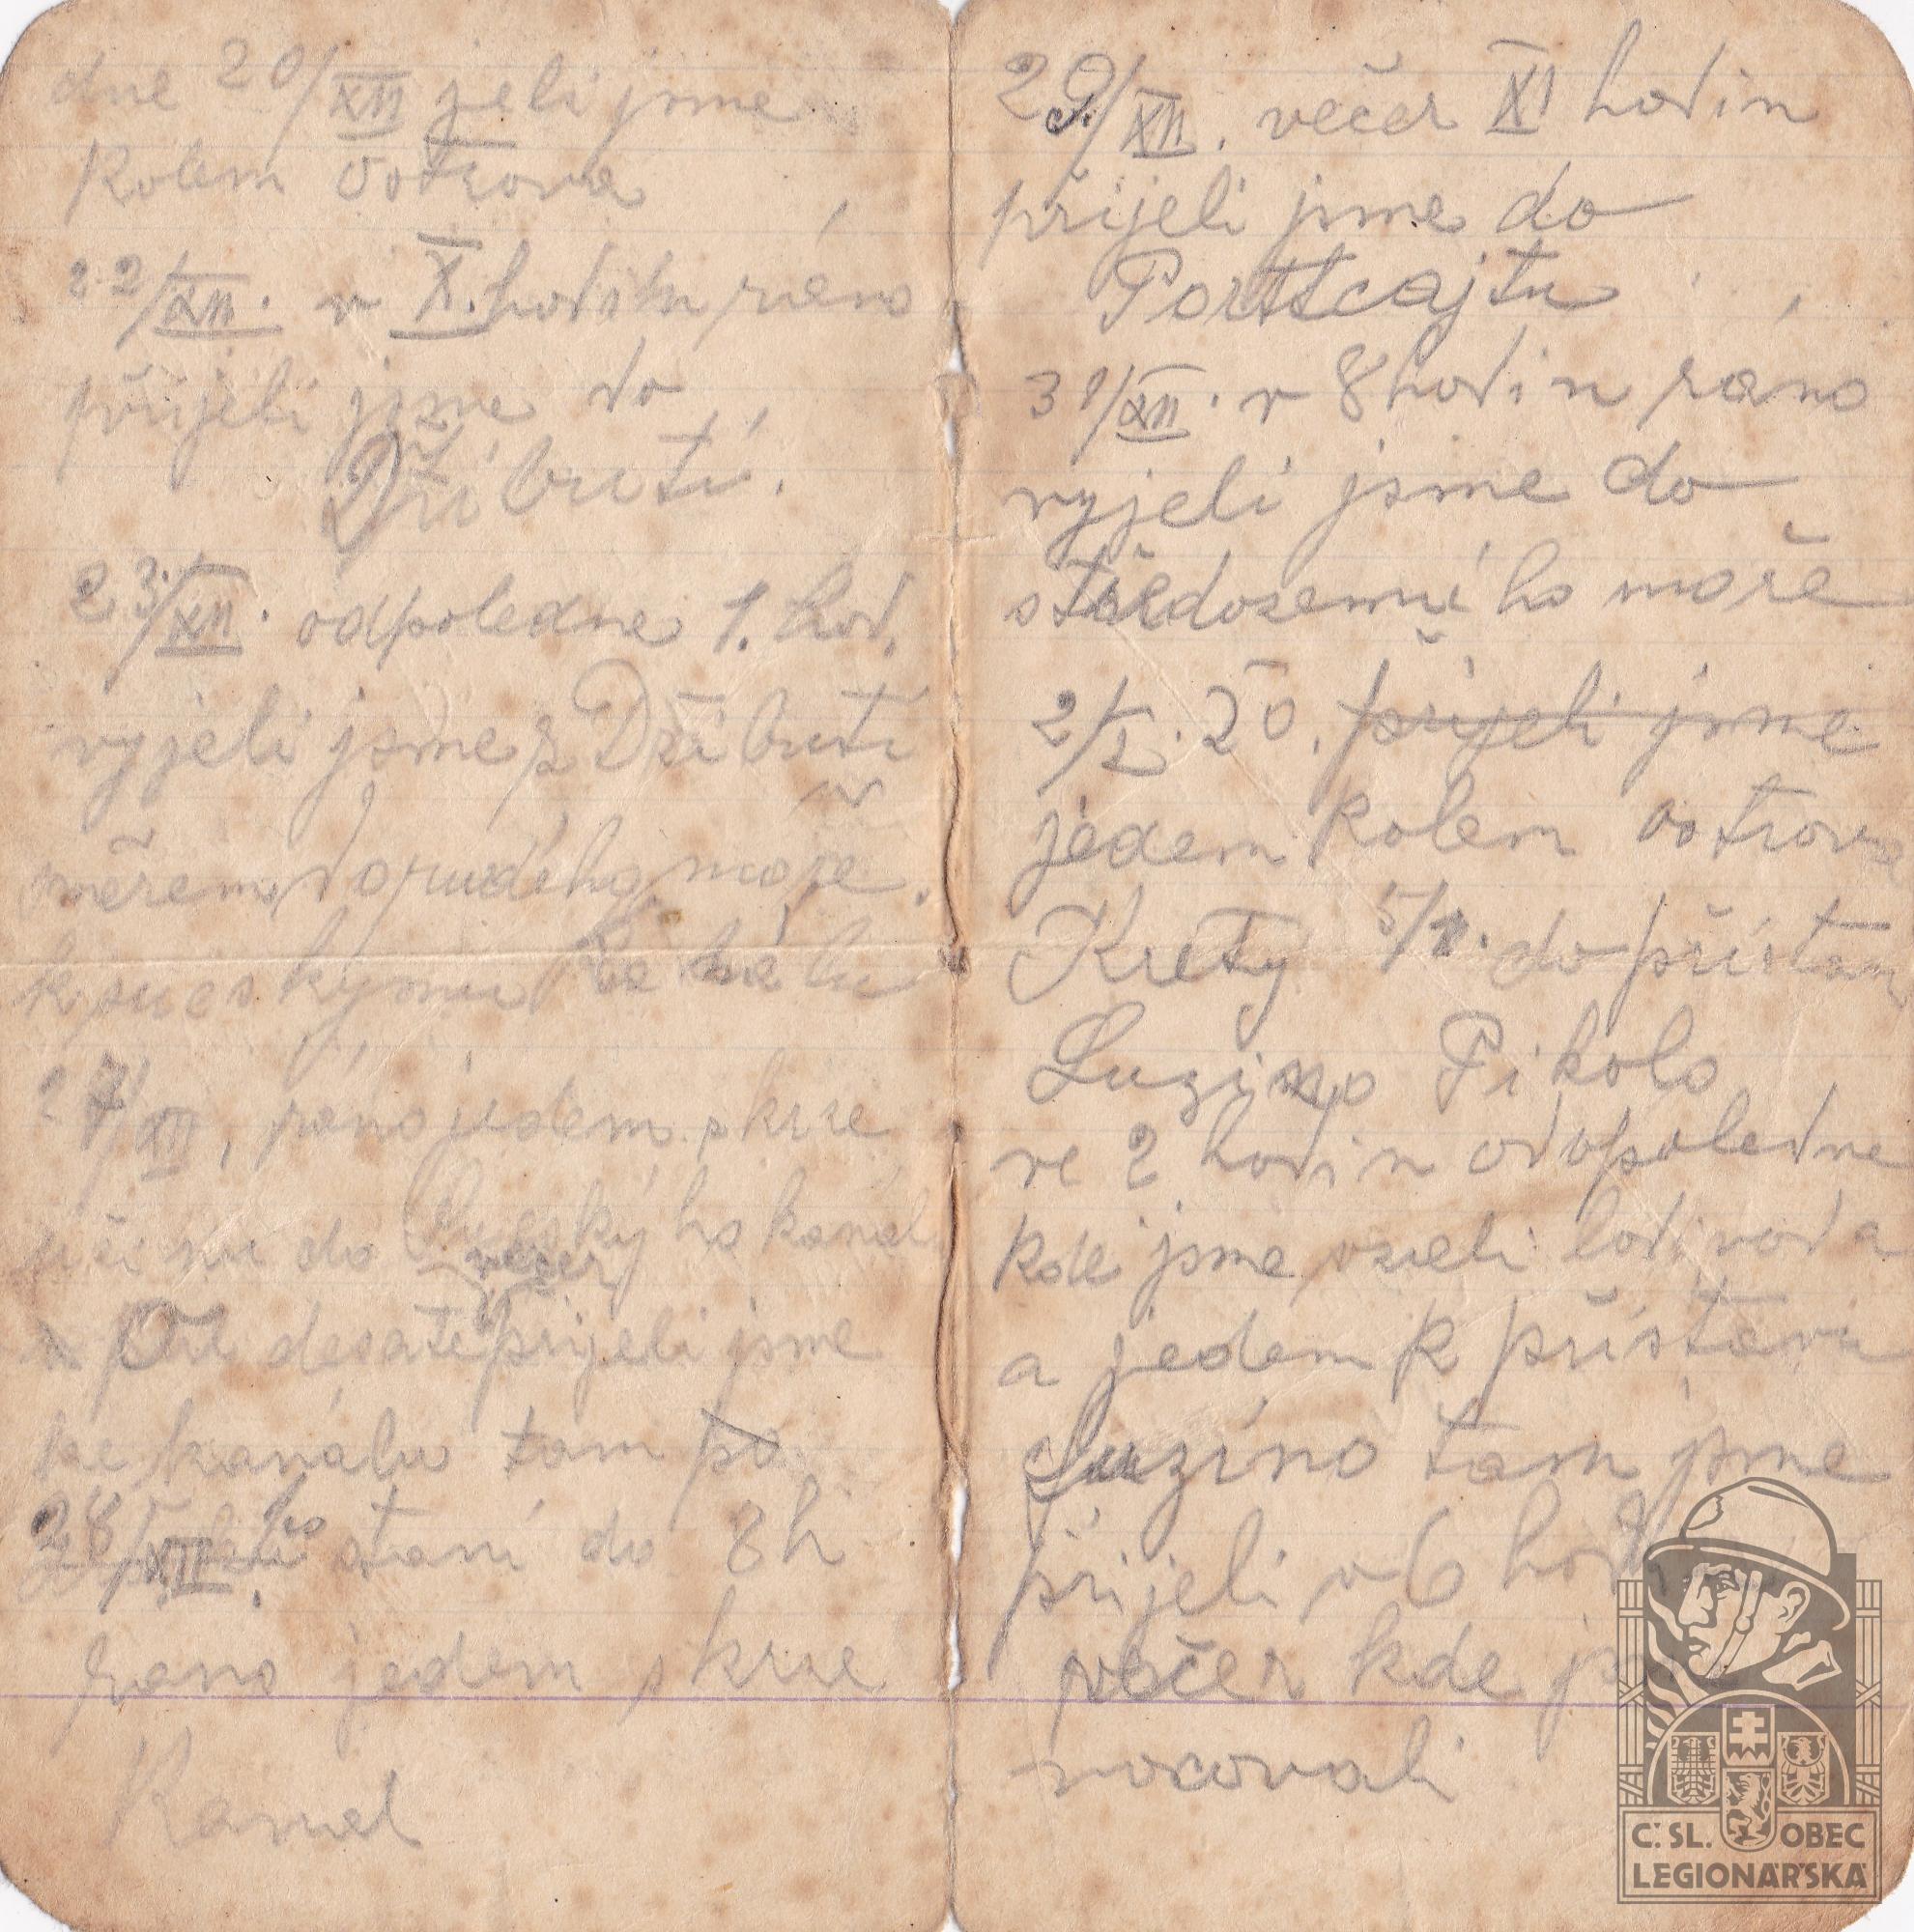 dne 20/XII jeli jsme
kolem vostrova
22/XII. v X. hodin ráno
přijeli jsme do
Dřibuti.
23/XII. odpoledne 1. hod.
vyjeli jsme z Džibuti
směrem do rudého moře.
k sueskýmu kanálu
27/XII, ráno jedem skrze
do Sueskýho kanál
večer
desáté přijeli jsme
ke kanálu tam po
28/XII. stání do 8h
ráno jedem skrze
Kanál
29/XII. večer XI hodin
přijeli jsme do
Porttcajtu
31/XII. v 8 hodin ráno
vyjeli jsme do
středozemního moře
2/I. 20. přijeli jsme
jedem kolem vostrova
Krety 5/1. do přístavu
Luzino Pikolo
ve 2 hodin odopoledne
kde jsme vzeli lodivoda
a jedem k přístavu
Luzíno tam jsme
přijeli v 6 hod
večer kde
nocovali
Č. SL. OBEC
LEGIONÁŘSKÁ